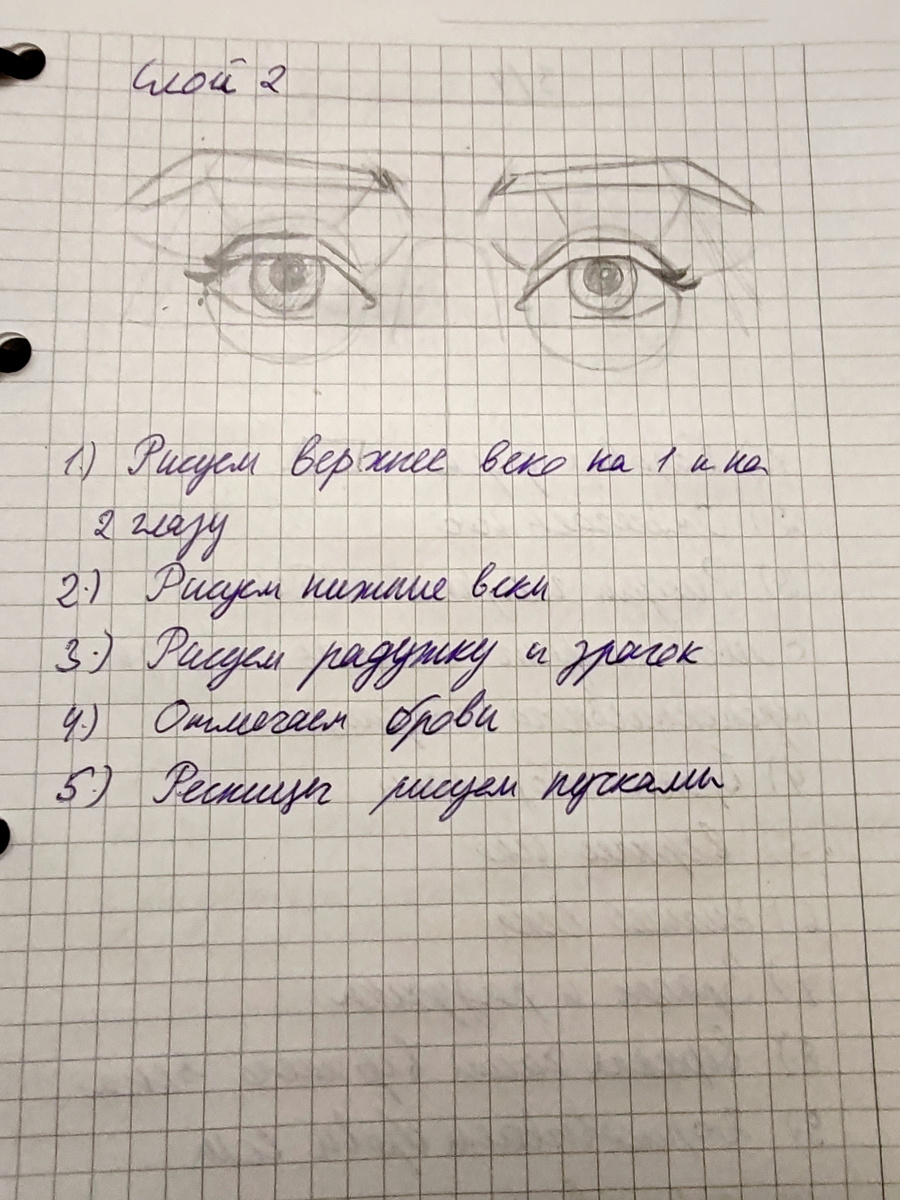 Слой 2
1.) Рисуем верхнее веко на 1 и на
2 глазу
2.) Рисуем нижние веки
3.) Рисуем радужку и зрачок
4.) Отмечаем брови
5.) Ресницы рисуем пучками